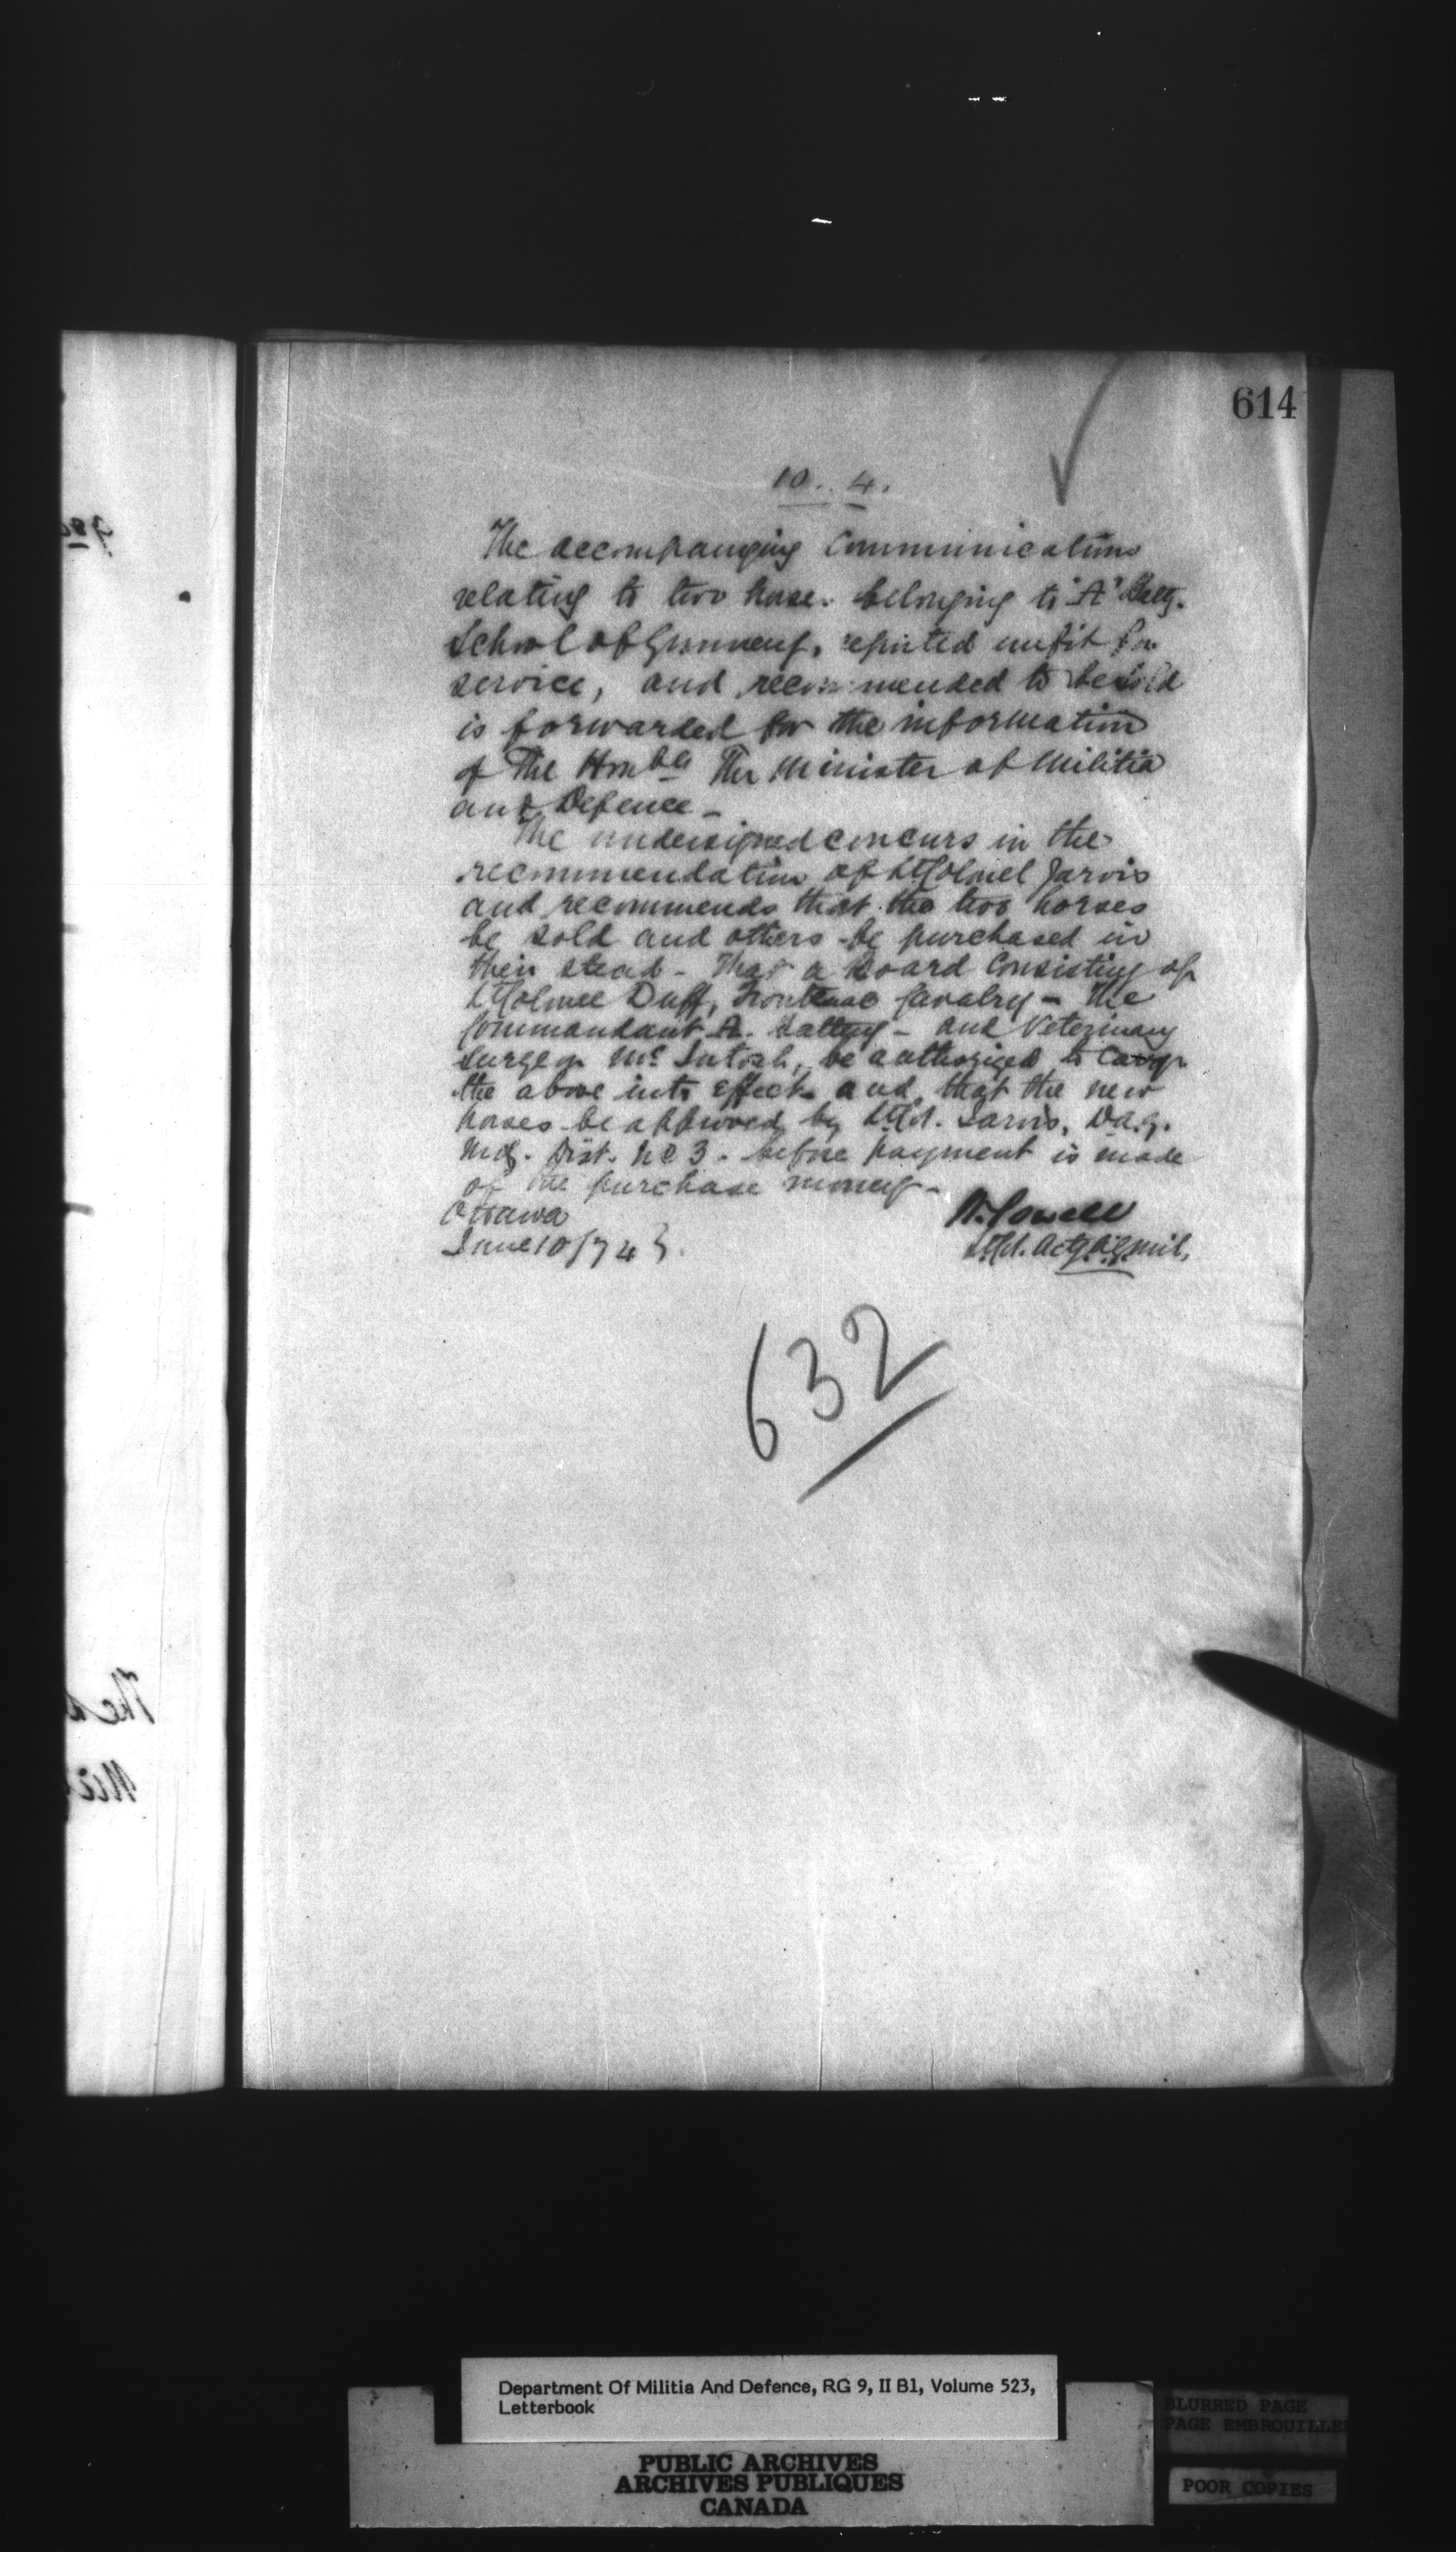 614
10. 4.
The accompanying Communications
relating to two horses belonging to "A" Batty.
School of Gunnery, reported unfit for
service, and recommended to be sold
is forwarded for the information
of The Honble The Minister of Militia
and Defence -
The undersigned concurs in the
recommendation of Lt Colonel Jarvis
and recommends that the two horses
be sold and others be purchased in
their stead - That a Board Consisting of
Lt Colonel Duff, Frontenac Cavalry - The
Commandant A. Battery - and Veterinary
Surgeon McIntosh, be authorized to carry
the above into effect and that the new
horses be approved by Lt Col. Jarvis, D.A.G.
Mil. Dist. No 3. before payment is made
of the purchase money -
Ottawa
June 10/74
W. Powell
Lt Col. Actg A.G. Mil.
632
Department Of Militia And Defence, RG 9, II B1, Volume 523,
Letterbook
PUBLIC ARCHIVES
ARCHIVES PUBLIQUES
CANADA
BLURRED PAGE
PAGE EMBROUILLE
POOR COPIES